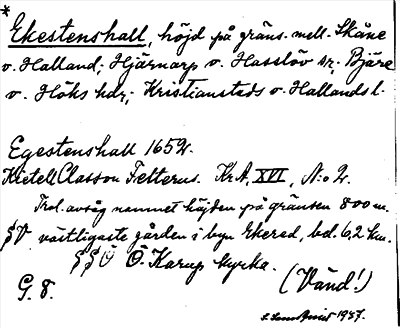 *
Ekestenshall, höjd på gräns. mell. Skåne
o. Halland; Hjärnarp o. Hasslöv sr; Bjäre
o. Höks hdr; Kristianstads o. Hallands l.
Egestenshall 1652.
Kietell Classon Felterus. KrA, XVI, N:o 2.
Trol. avsåg namnet höjden på gränsen 800 m.
SV västligaste gården i byn Ekered, bd. 6,2 km.
Ö. Karup kyrka.
G. 8.
(Vänd!)
1937.